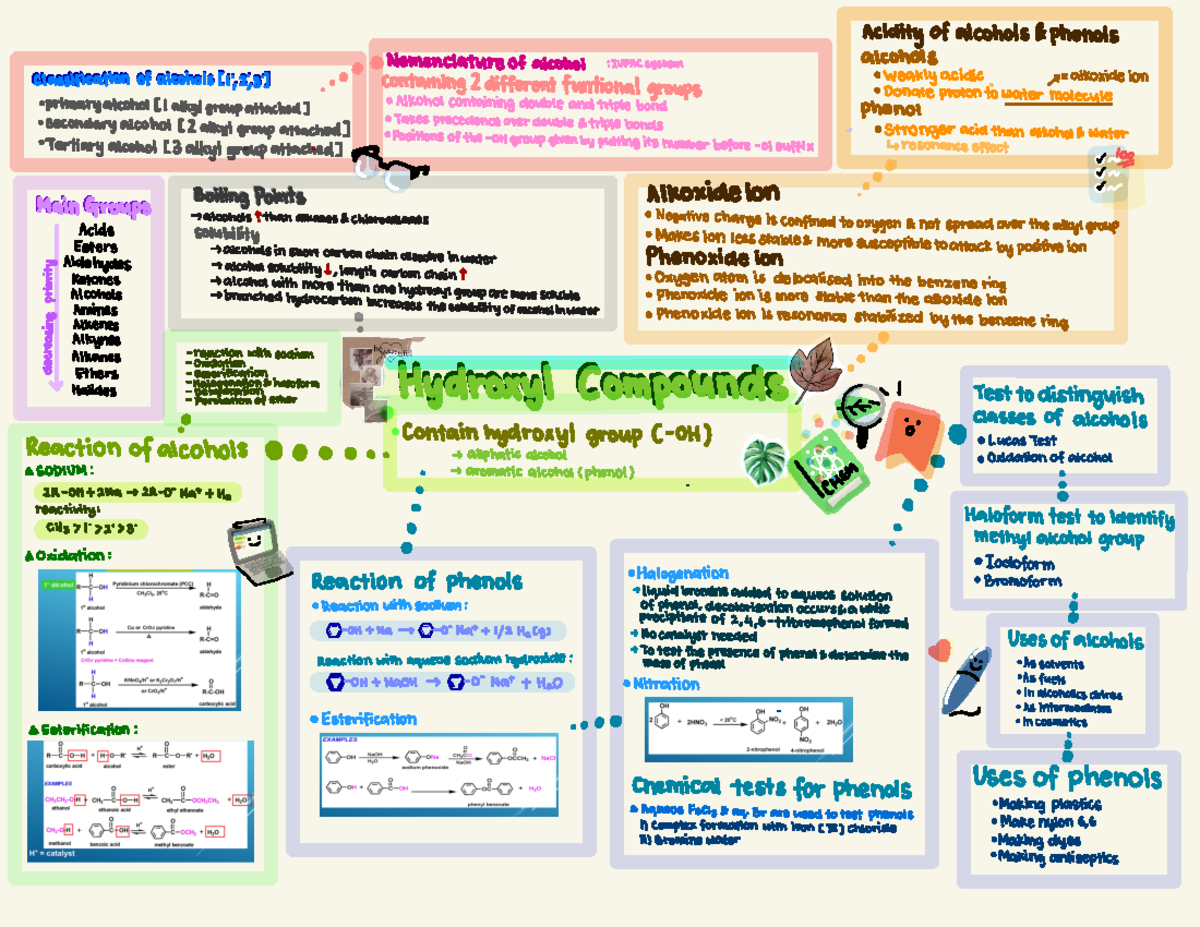 Classification of alcohols [1°,2°,3°]
•primary alcohol [1 alkyl group attached]
•secondary alcohol [2 alkyl group attached]
•Tertiary alcohol [3 alkyl group attached]
Nomenclature of alcohol :IUPAC system
containing 2 different funtional groups
• Alkohol containing double and triple bond
• Takes precedence over double & triple bonds
• Positions of the -OH group given by putting its number before -ol suffix
Acidity of alcohols & phenols
alcohols
• Weakly acidic
= alkoxide ion
• Donate proton to water molecule
phenol
• Stronger acid than alcohol & water
↳ resonance effect
Main Groups
decreasing priority
Acids
Esters
Aldehydes
Ketones
Alcohols
Amines
Alkenes
Alkynes
Alkanes
Ethers
Halides
Boiling Points
→ alcohols ↑ than alkanes & chloroalkanes
Solubility
→ alcohols in short carbon chain dissolve in water
→ alcohol solubility ↓, length carbon chain ↑
→ alcohol with more than one hydroxyl group are more soluble
→ branched hydrocarbon increases the solubility of alcohol in water
Alkoxide Ion
• Negative charge is confined to oxygen & not spread over the alkyl group
• Makes ion less stable & more susceptible to attack by positive ion
Phenoxide ion
• Oxygen atom is delocalised into the benzene ring
• Phenoxide ion is more stable than the alkoxide ion
• Phenoxide ion is resonance stabilized by the benzene ring
- reaction with sodium
- Oxidation
- Esterification
- Halogenation & haloform
- Dehydration
- Formation of ether
Hydroxyl Compounds
• Contain hydroxyl group (-OH)
→ aliphatic alcohol
→ aromatic alcohol (phenol)
CHEM
100
Reaction of alcohols
▲ SODIUM :
2R-OH + 2Na → 2R-O⁻ Na⁺ + H₂
reactivity:
CH₃ > 1° > 2° > 3°
▲ Oxidation :
1° alcohol
Pyridinium chlorochromate (PCC)
CH₂Cl₂, 25°C
1° alcohol
aldehyde
Cu or CrO₃/ pyridine
Δ
1° alcohol
aldehyde
CrO₃/ pyridine = Collins reagent
KMnO₄/H⁺ or K₂Cr₂O₇/H⁺
or CrO₃/H⁺
1° alcohol
carboxylic acid
▲ Esterification :
carboxylic acid alcohol ester
EXAMPLES
ethanol ethanoic acid ethyl ethanoate
methanol benzoic acid methyl benzoate
H⁺ = catalyst
Reaction of phenols
• Reaction with sodium :
-OH + Na → -O⁻ Na⁺ + 1/2 H₂(g)
Reaction with aqueous sodium hydroxide :
-OH + NaOH → -O⁻ Na⁺ + H₂O
• Esterification
EXAMPLES
NaOH
H₂O
sodium phenoxide
phenyl benzoate
• Halogenation
→ liquid bromine added to aqueous solution
of phenol, decolorisation occurs & a white
precipitate of 2,4,6-tribromophenol formed
→ No catalyst needed
→ To test the presence of phenol & determine the
mass of phenol
• Nitration
OH + 2HNO₃ < 20°C OH NO₂ + OH NO₂ + 2H₂O
2-nitrophenol 4-nitrophenol
Chemical tests for phenols
▲ Aqueous FeCl₃ & aq. Br are used to test phenols
i) Complex formation with iron (III) chloride
ii) Bromine water
Test to distinguish
classes of alcohols
• Lucas Test
• Oxidation of alcohol
Haloform test to identify
methyl alcohol group
• Iodoform
• Bromoform
Uses of alcohols
• As solvents
• As fuels
• In alcoholics drinks
• As intermediates
• In cosmetics
Uses of phenols
• Making plastics
• Make nylon 6,6
• Making dyes
• Making antiseptics